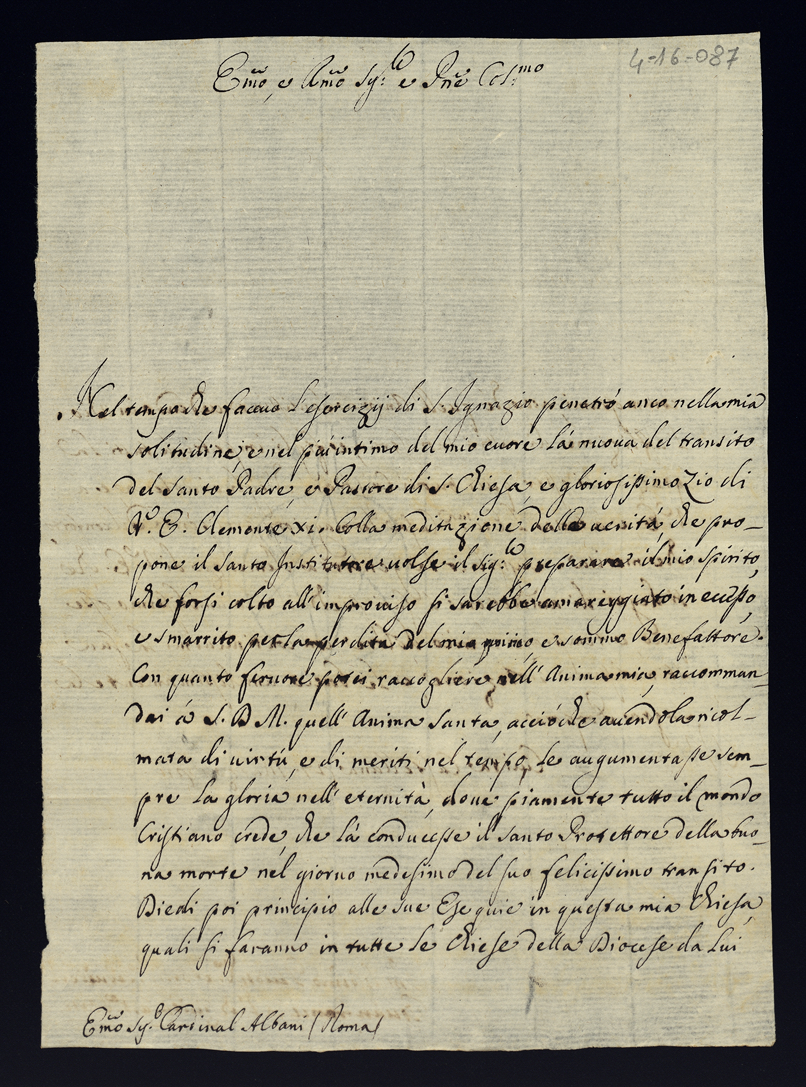 4-16-087
Em̃o, e Rm̃o Sig.re e Pñe Col.mo
Nel tempo che faceuo l'esercizij di S. Ignazio penetrò anco nella mia
solitudine, e nel più intimo del mio cuore la nuoua del transito
del Santo Padre, e Pastore di S. Chiesa, e gloriosissimo Zio di
V.ª E. Clemente XI. Colla meditazione delle uerità, che pro-
pone il Santo Institutore uolse il Sig.re preparare il mio spirito,
che forsi colto all'improuiso si sarebbe amareggiato in eccesso,
e smarrito per la perdita del mio primo, e sommo Benefattore.
Con quanto feruore potei raccogliere nell'Anima mia, raccomman-
dai à S. D. M. quell'Anima Santa, acciòche auendola ricol-
mata di uirtù, e di meriti nel tempo, le augumentasse sem-
pre la gloria nell'eternità, doue piamente tutto il mondo
Cristiano crede, che là conducesse il Santo Protettore della buo-
na morte nel giorno medesimo del suo felicissimo transito.
Diedi poi principio alle sue Esequie in questa mia Chiesa,
quali si faranno in tutte le Chiese della Diocese da Lui
Em̃o Sig.e Cardinal Albani (Roma)